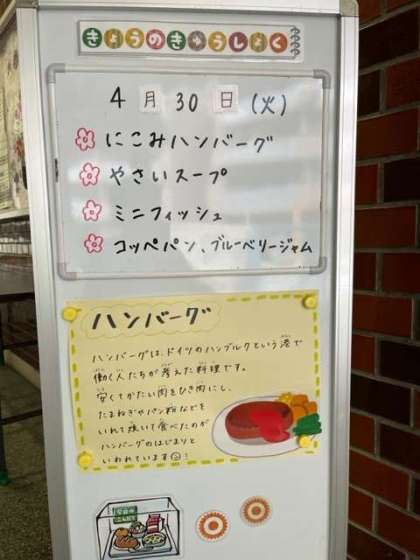 きょうのきゅうしょく
4月30日(火)
にこみハンバーグ
やさいスープ
ミニフィッシュ
コッペパン、ブルーベリージャム
ハンバーグ
ハンバーグは、ドイツのハンブルクという港で
働く人たちが考えた料理です。
安くてかたい肉をひき肉にし、
たまねぎやパン粉などを
いれて焼いて食べたのが
ハンバーグのはじまりと
いわれています